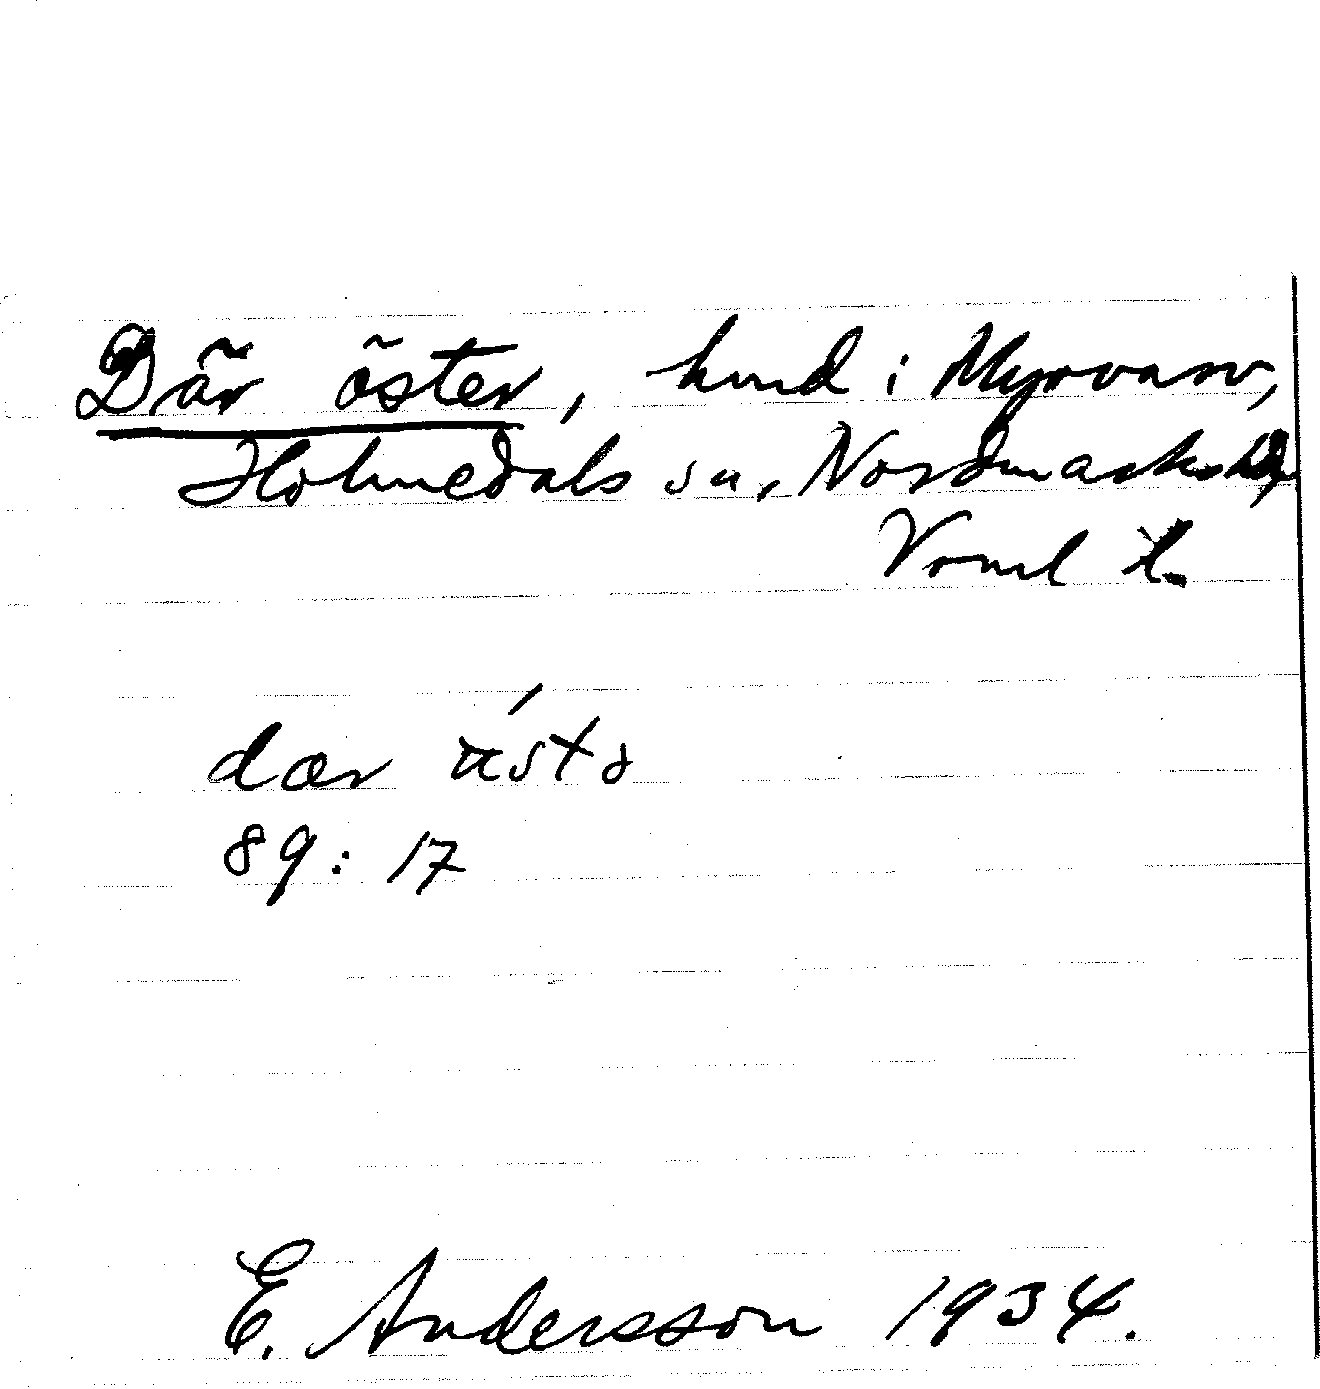 Där öster, hmd i Myrvarv,
Holmedals sn, Nordmarks hd,
Vrml l.
dær östə
89:17
E. Andersson 1934.